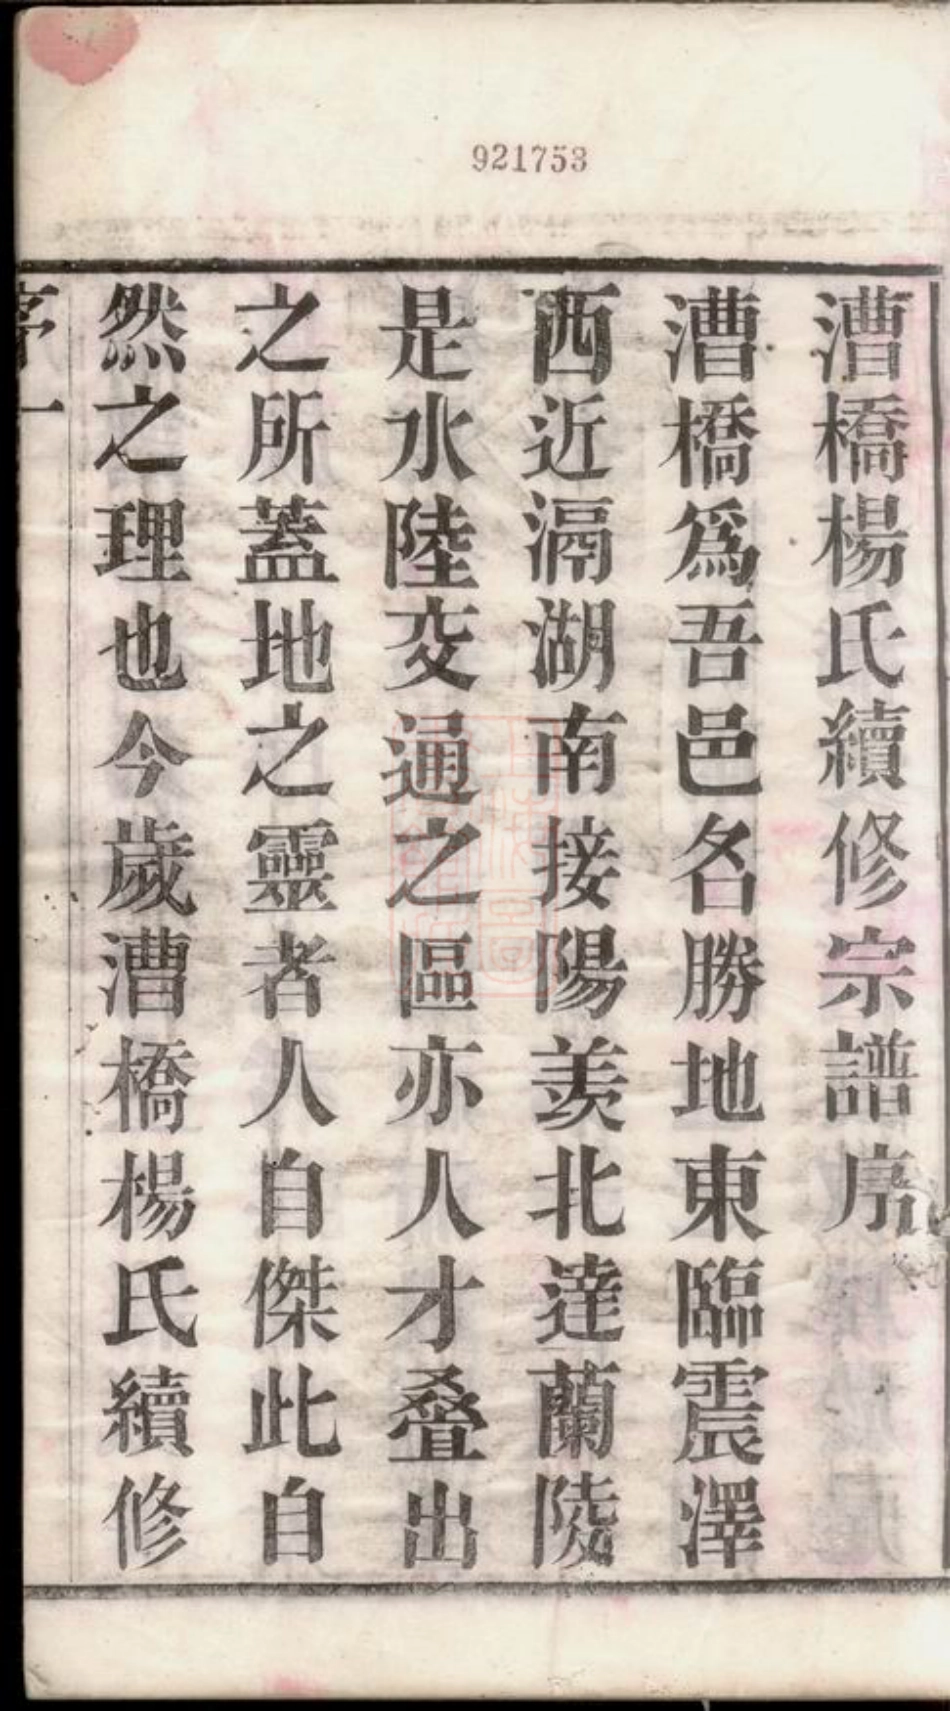 921753
漕橋楊氏續修宗譜序
漕橋爲吾邑名勝地東臨震澤
西近滆湖南接陽羨北達蘭陵
是水陸交通之區亦人才叠出
之所蓋地之靈者人自傑此自
然之理也今歲漕橋楊氏續修
序一